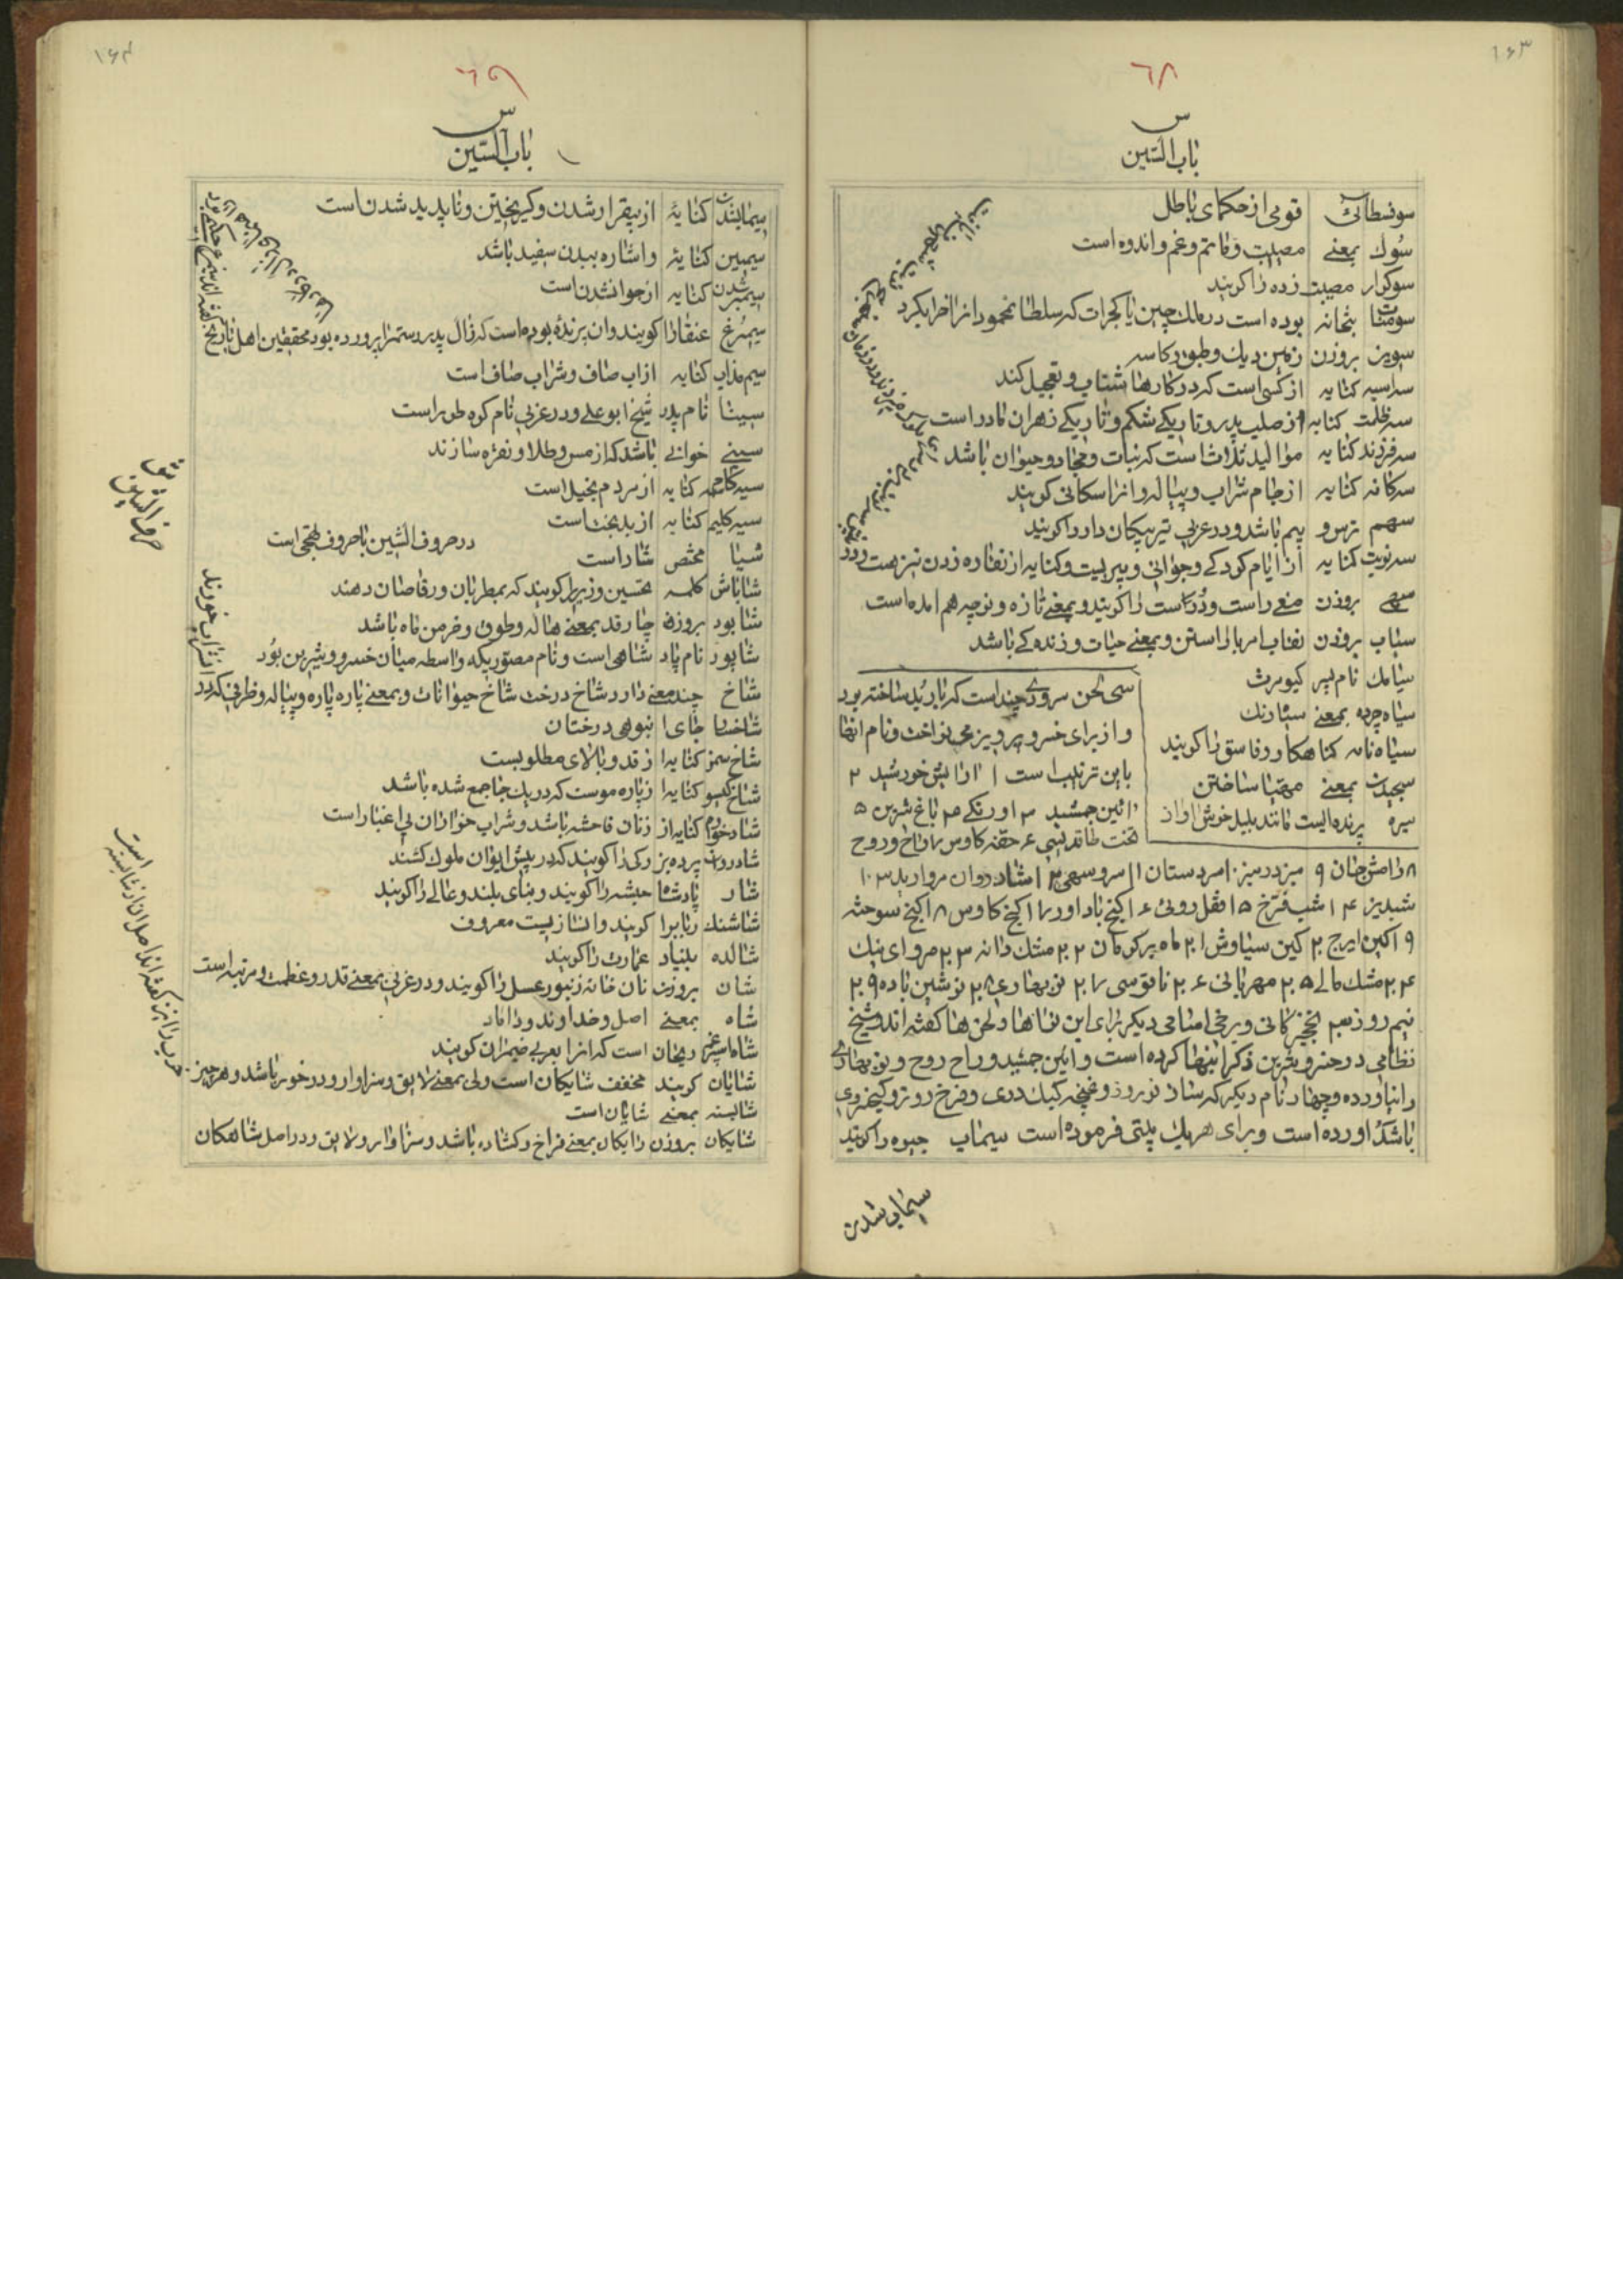 ۱۶۳
٦٨
س
باب السّین
سوفسطائی قومی از حکمای باطل
سُوك بمعنے مصیبت و ماتم و غم و اندوه است
سوکوار مصیبت زده را کویند
سومنات بتخانه بوده است در ملك چین یا کجرات که سلطان محمود انرا خراب کرد
بروزن دیك و طبق و کاسه
سراسیمه کنایه از کسی است که در کارها شتاب و تعجیل کند
سه ظلمت کنایه از صلب پدر و تاریکے شکم و تاریکے زهدان مادر است
سه فرزند کنایه موالید ثلاث است که نبات و جماد و حیوان باشد
سه کانه کنایه از جام شراب و پیاله و انرا سکانی کویند
سهم ترس و بیم باشد و در عربی تیر پیکان دار را کویند
سه نوبت کنایه از ایام کودکے و جوانی و پیریست و کنایه از نقاره زدن نیز هست
سهی بروزن راست و درست را کویند و بمعنے تازه و نوچه هم امده است
سیاب بروزن بمعنے حیات و زندکے باشد
سیامك نام پسر کیومرث
سیاه چرده بمعنے سیاه رنك
سیاه نامه کناهکار و فاسق را کویند
سیجیدن بمعنے مهیّا ساختن
سیره پرنده ایست مانند بلبل خوش اواز
سی لحن سرودے چند است که باربد ساخته بود
و از برای خسرو پرویز می نواخت و نام انها
باین ترتیب است ۱ ارایش خورشید ۲
ائین جمشید ۳ اورنکے ۴ باغ شیرین ۵
تخت طاقدیسی ۶ حقه کاوس ۷ راح و روح
۸ رامش جان ۹ سبز در سبز ۱۰ سروستان ۱۱ سرو سهی ۱۲ شادروان مروارید ۱۳
شبدیز ۱۴ شب فرّخ ۱۵ قفل رومی ۱۶ کنج باد اور ۱۷ کنج کاوس ۱۸ کنج سوخته
۱۹ کین ایرج ۲۰ کین سیاوش ۲۱ ماه بر کوهان ۲۲ مشك دانه ۲۳ مروای نیك
۲۴ مشك مالے ۲۵ مهربانی ۲۶ ناقوسی ۲۷ نوبهاری ۲۸ نوشین باده ۲۹
نیم روز نخجیرکانی و برخی اسامی دیکر برای این نواها و لحن ها کفته اند و شیخ
نظامی در خسرو و شیرین ذکر اینها کرده است و ائین جمشید و راح روح و نوبهاری
را نیاورده و چهار نام دیکر که ساز نوروز و غنچه کبك دری و فرخ روز و کیخسروی
باشد اورده است و برای هریك بیتی فرموده است سیماب جیوه را کویند
سیماب شدن
۱۶۴
٦٩
س
باب السّین
سیماب شدن کنایهٔ از بیقرار شدن و کریختن و ناپدید شدن است
سیمین کنایهٔ و اشاره ببدن سفید باشد
کنایه از جوان شدن است
سیمرغ عنقا را کویند و ان پرندهٔ بوده است که زال پدر رستم را پرورده بود محققین اهل تاریخ
سیم مذاب کنایه از اب صاف و شراب صاف است
سینا نام پدر شیخ ابو علے و در عربی نام کوه طور است
سینے خوانی باشد که از مس و طلا و نقره سازند
سیه کاسه کنایه از مردم بخیل است
سیه کلیم کنایه از بدبخت است
در حروف الشین با حروف تهجی است
شاباش کلمه تحسین و زیرا کویند که بمطربان و رقاصان دهند
شابود بروزن چارقد بمعنے هاله و طوق و خرمن ماه باشد
شاپور نام پادشاهی است و نام مصوریکه واسطه میان خسرو و شیرین بود
شاخ چند معنے دارد شاخ درخت شاخ حیوانات و بمعنے پاره پاره و پیاله و ظرفی که در
شاخسار جای انبوهی درختان
شاخ سمن کنایه از قد و بالای مطلوبست
شاخ کیسو کنایه از پاره موست که در یك جا جمع شده باشد
شاد خوار کنایه از زنان فاحشه باشد و شراب خواران بی اغیار است
شادروان پرده بزرکی را کویند که در پیش ایوان ملوك کشند
شار پادشاه حبشه را کویند و بنای بلند و عالی را کویند
شاشنك ربابرا کویند و ان سازیست معروف
شالده بنیاد عمارت را کویند
شان بروزن نان خانه زنبور عسل را کویند و در عربی بمعنے قدر و عظمت و مرتبه است
شاه بمعنے اصل و خداوند و داماد
شاه سپرغم ریحان است که انرا بعربی ضیمران کویند
شایان کویند مخفف شایکان است ولی بمعنے لایق و سزاوار و در خور باشد و هر چیز
شایسته بمعنے شایان است
شایکان بروزن رایکان بمعنے فراخ و کشاده باشد و سزاوار و لایق و در اصل شاهکان
حرف الشین
ش
است